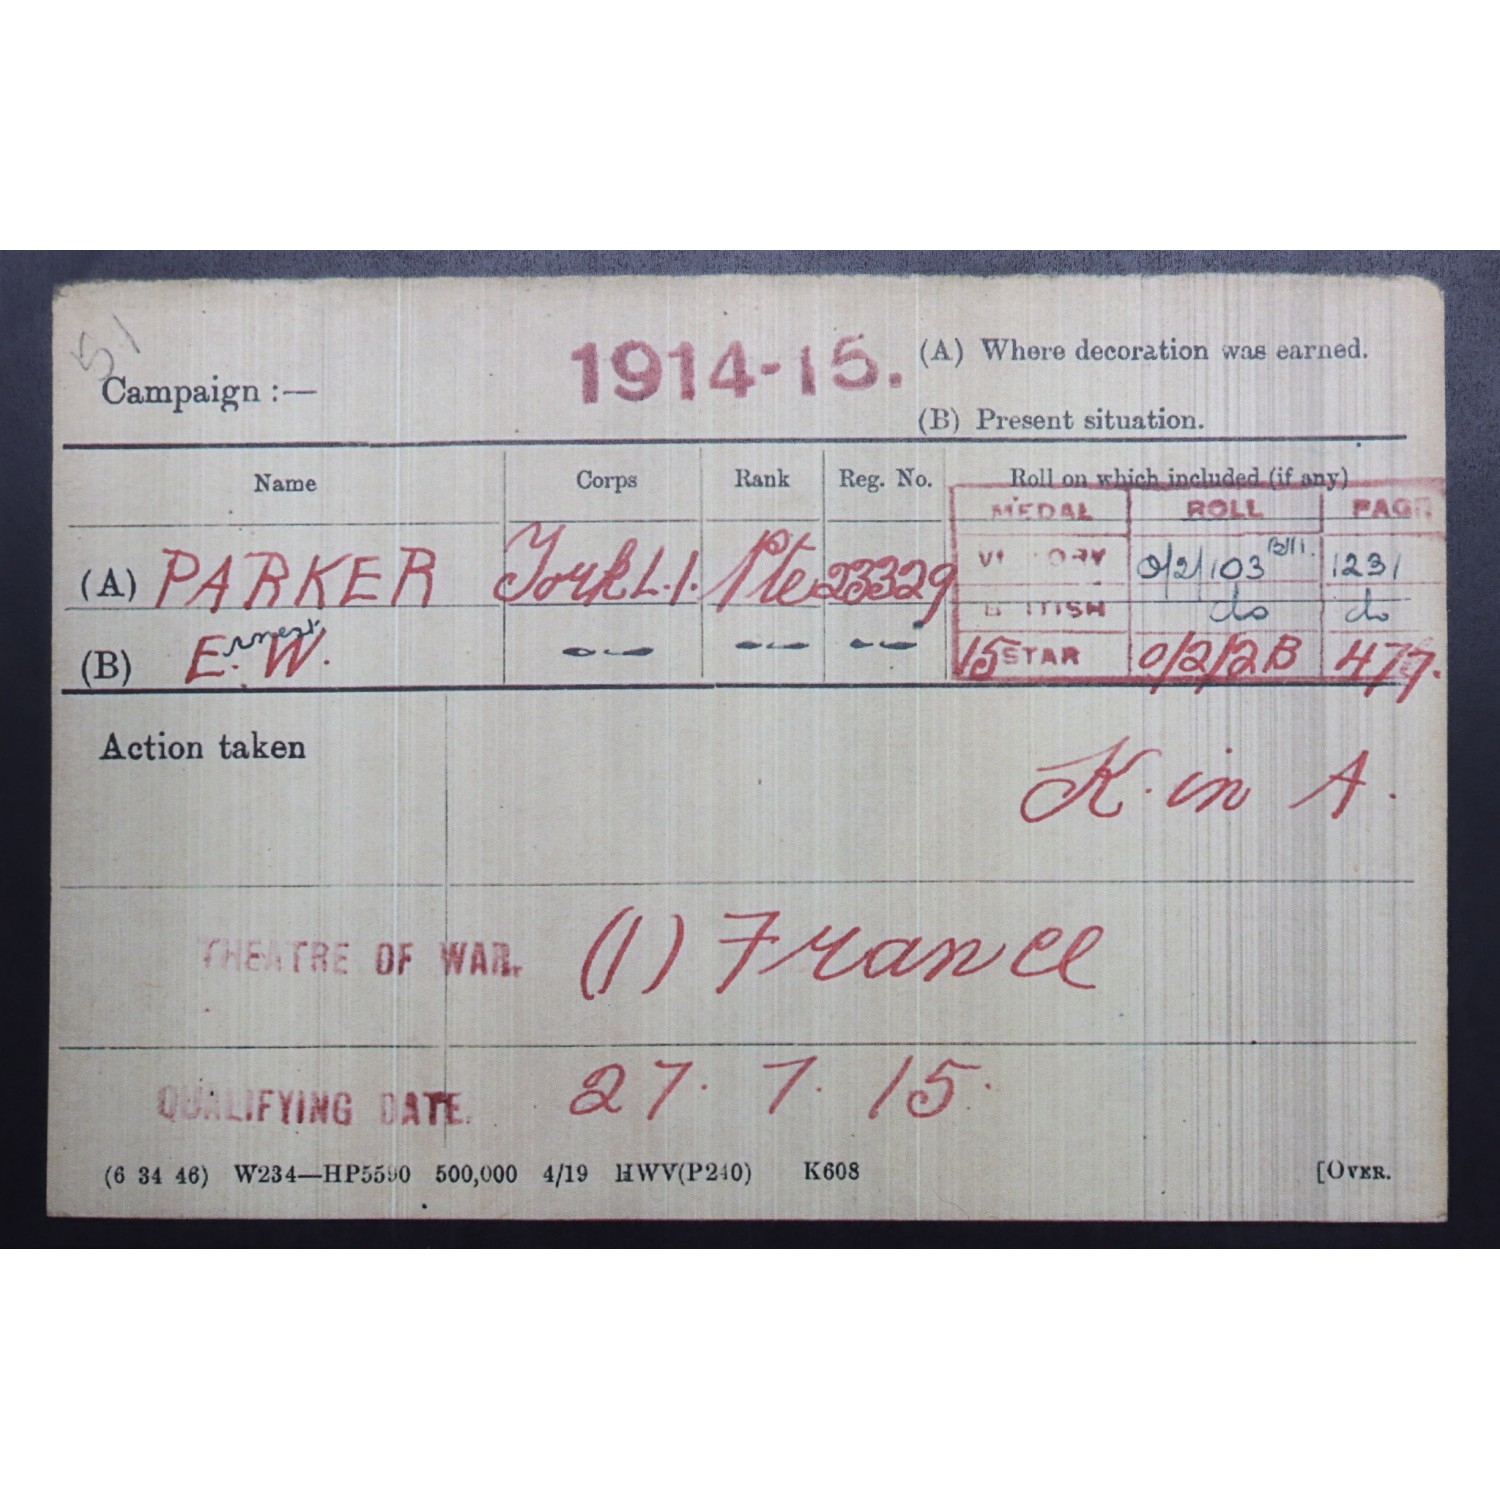 51
Campaign :—
1914-15.
(A) Where decoration was earned.
(B) Present situation.
Name Corps Rank Reg. No. Roll on which included (if any)
MEDAL ROLL PAGE
(A) PARKER York L.I. Pte 23329 VICTORY O/2/103 B/11. 1231
BRITISH do do
(B) Ernest W. -- -- -- 15 STAR O/2/2B 477.
Action taken
K. in A.
THEATRE OF WAR. (1) France
QUALIFYING DATE. 27. 7. 15.
(6 34 46) W234—HP5590 500,000 4/19 HWV(P240) K608 [OVER.